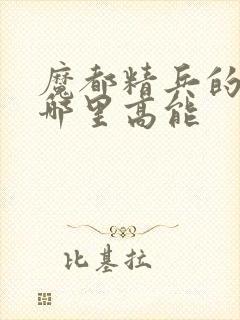 魔都精兵的
哪里高能
比基拉